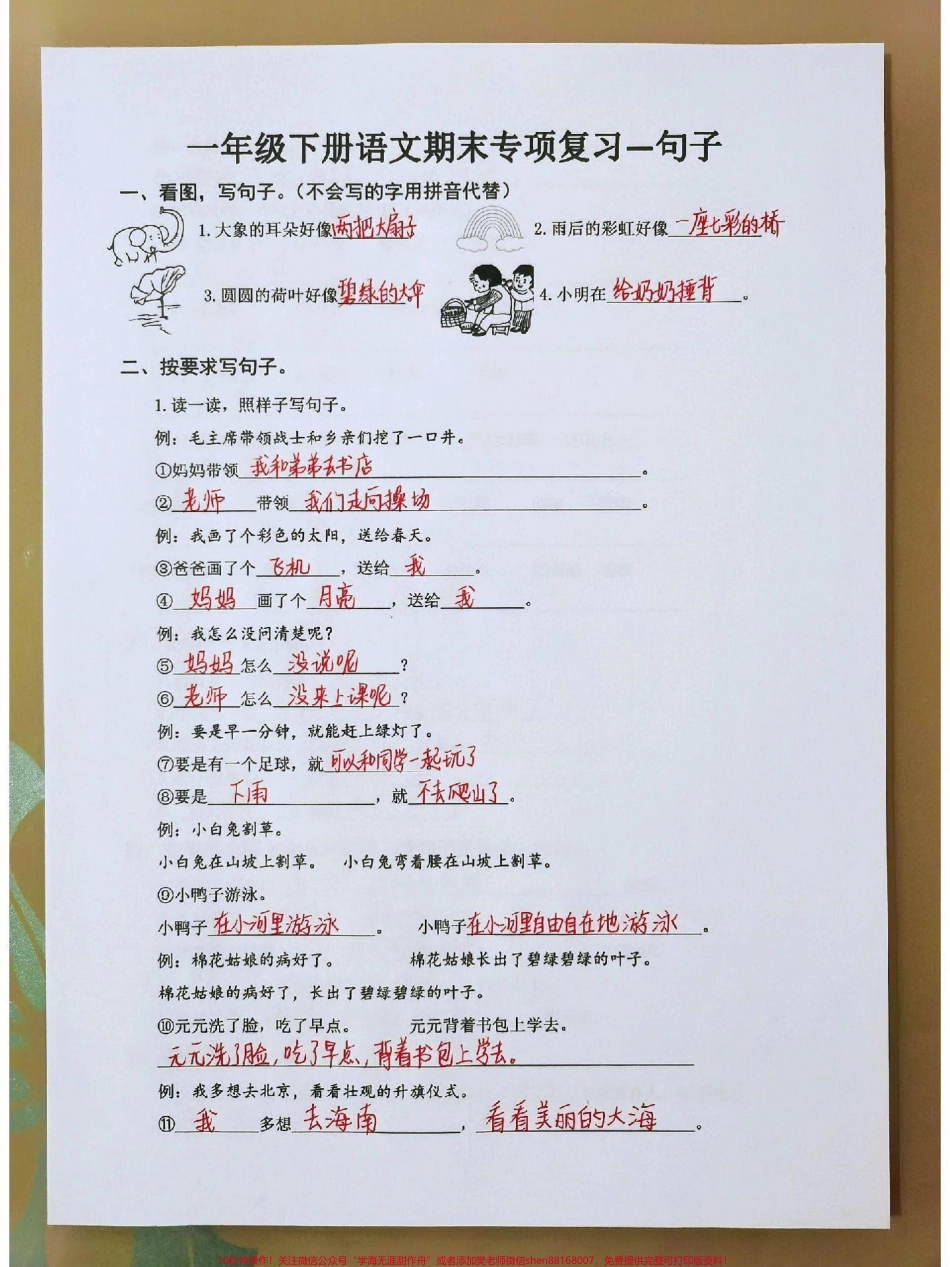 一年级下册语文期末专项复习—句子
一、看图，写句子。（不会写的字用拼音代替）
1.大象的耳朵好像两把大扇子 2.雨后的彩虹好像一座七彩的桥
3.圆圆的荷叶好像碧绿的大伞 4.小明在给奶奶捶背。
二、按要求写句子。
1.读一读，照样子写句子。
例：毛主席带领战士和乡亲们挖了一口井。
①妈妈带领我和弟弟去书店。
②老师带领我们走向操场。
例：我画了个彩色的太阳，送给春天。
③爸爸画了个飞机，送给我。
④妈妈画了个月亮，送给我。
例：我怎么没问清楚呢？
⑤妈妈怎么没说呢？
⑥老师怎么没来上课呢？
例：要是早一分钟，就能赶上绿灯了。
⑦要是有一个足球，就可以和同学一起玩了
⑧要是下雨，就不去爬山了。
例：小白兔割草。
小白兔在山坡上割草。 小白兔弯着腰在山坡上割草。
⑨小鸭子游泳。
小鸭子在小河里游泳。 小鸭子在小河里自由自在地游泳。
例：棉花姑娘的病好了。 棉花姑娘长出了碧绿碧绿的叶子。
棉花姑娘的病好了，长出了碧绿碧绿的叶子。
⑩元元洗了脸，吃了早点。 元元背着书包上学去。
元元洗了脸，吃了早点，背着书包上学去。
例：我多想去北京，看看壮观的升旗仪式。
⑪我多想去海南，看看美丽的大海。
关注微信公众号“学海无涯甜作舟”或者添加樊老师微信shen88168007，免费提供完整可打印版资料！